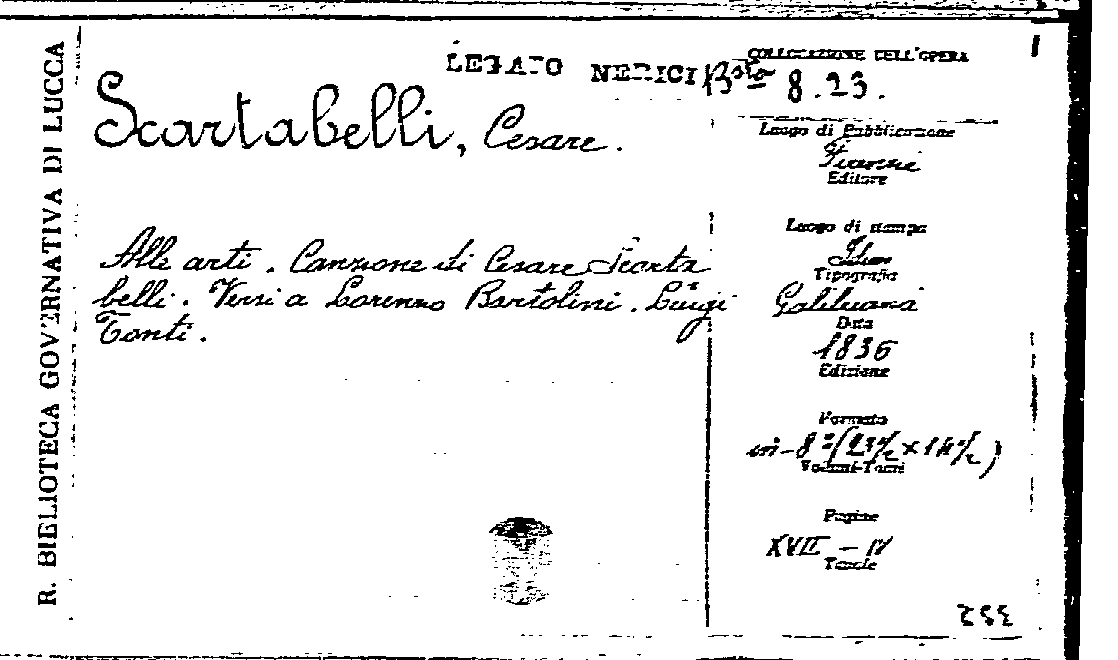 R. BIBLIOTECA GOVERNATIVA DI LUCCA
LEGATO NERICI
COLLOCAZIONE DELL'OPERA
Bta 8.23.
Scartabelli, Cesare.
Luogo di Pubblicazione
Firenze
Editore
Alle arti. Canzone di Cesare Scarta
belli. Versi a Lorenzo Bartolini. Luigi
Tonti.
Luogo di stampa
Idem
Tipografia
Galileiana
Data
1836
Edizione
Formato
in-8º (23½ x 14½)
Volumi-Tomi
Pagine
XVII - IV
Tavole